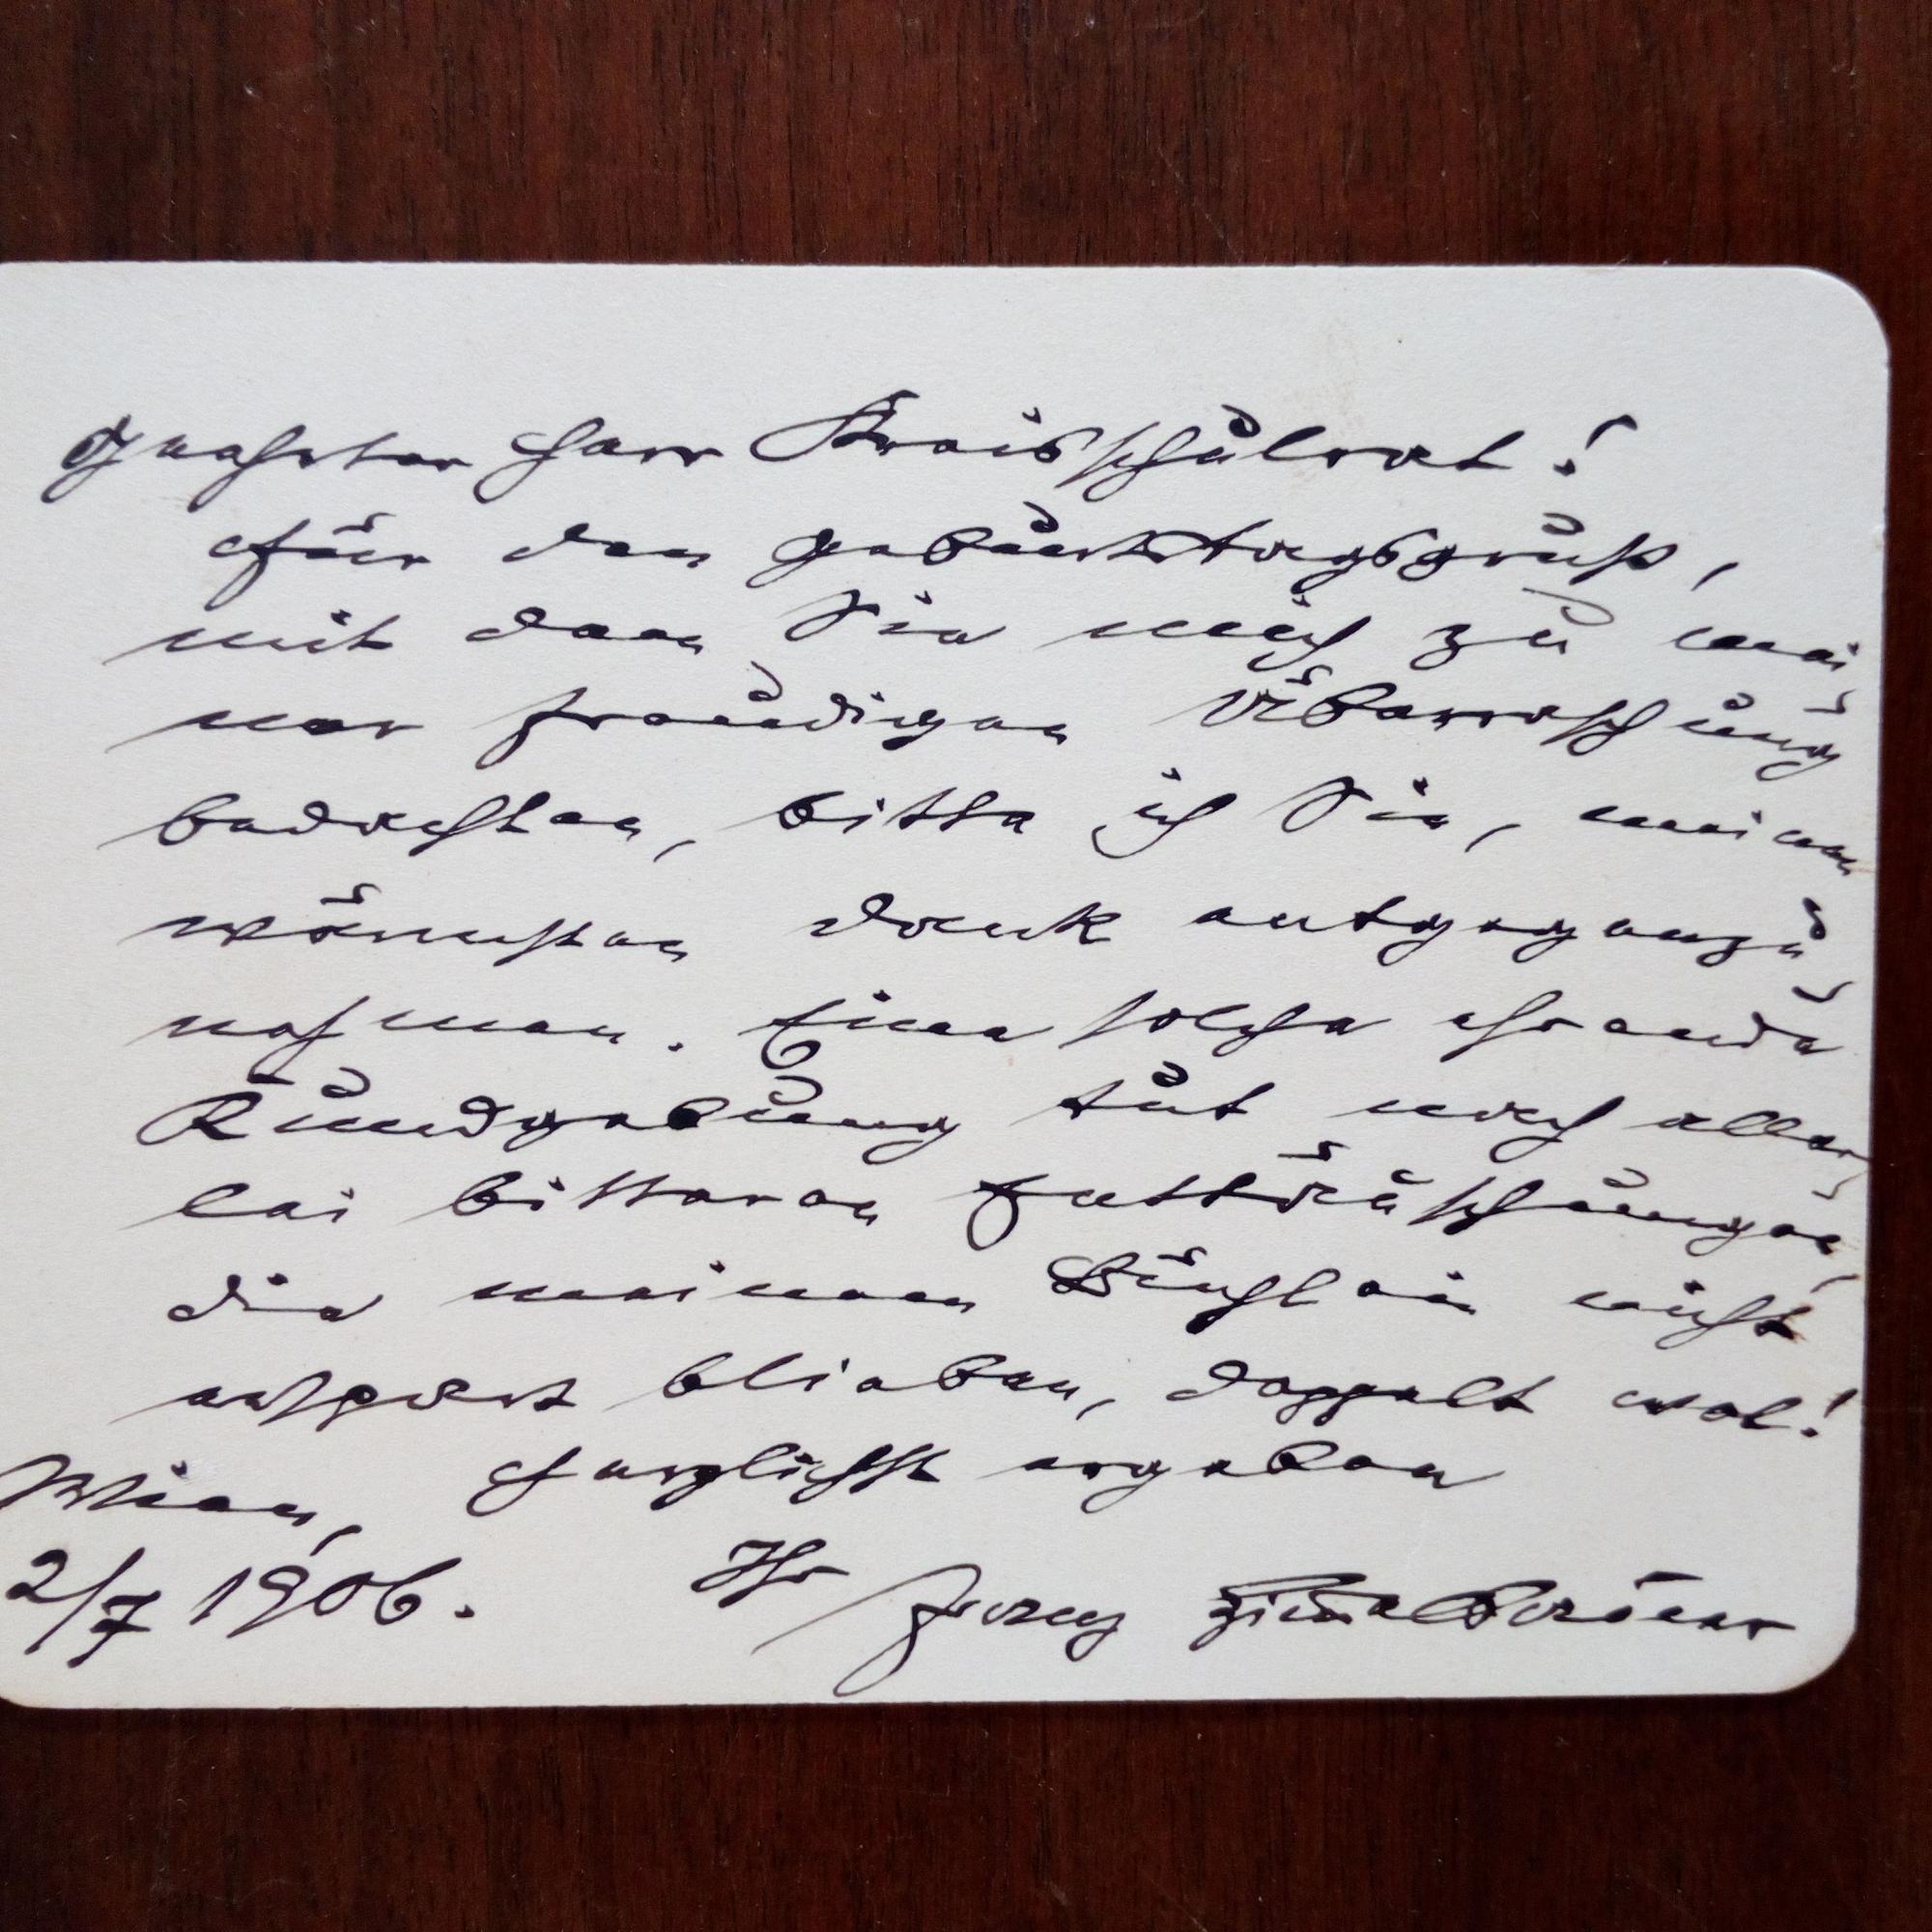 Geehrter Herr Kreisschulrat!
Für den Geburtstagsgruß,
mit dem Sie mich zu mei-
ner freudigen Überraschung
bedachten, bitte ich Sie, meinen
wärmsten Dank entgegenzu-
nehmen. Eine solche ehrende
Kundgebung tut nach aller-
lei bitteren Enttäuschungen,
die meinem Büchlein nicht
erspart blieben, doppelt wol!
Wien, Herzlichst ergeben
2/7 1906. Ihr Franz